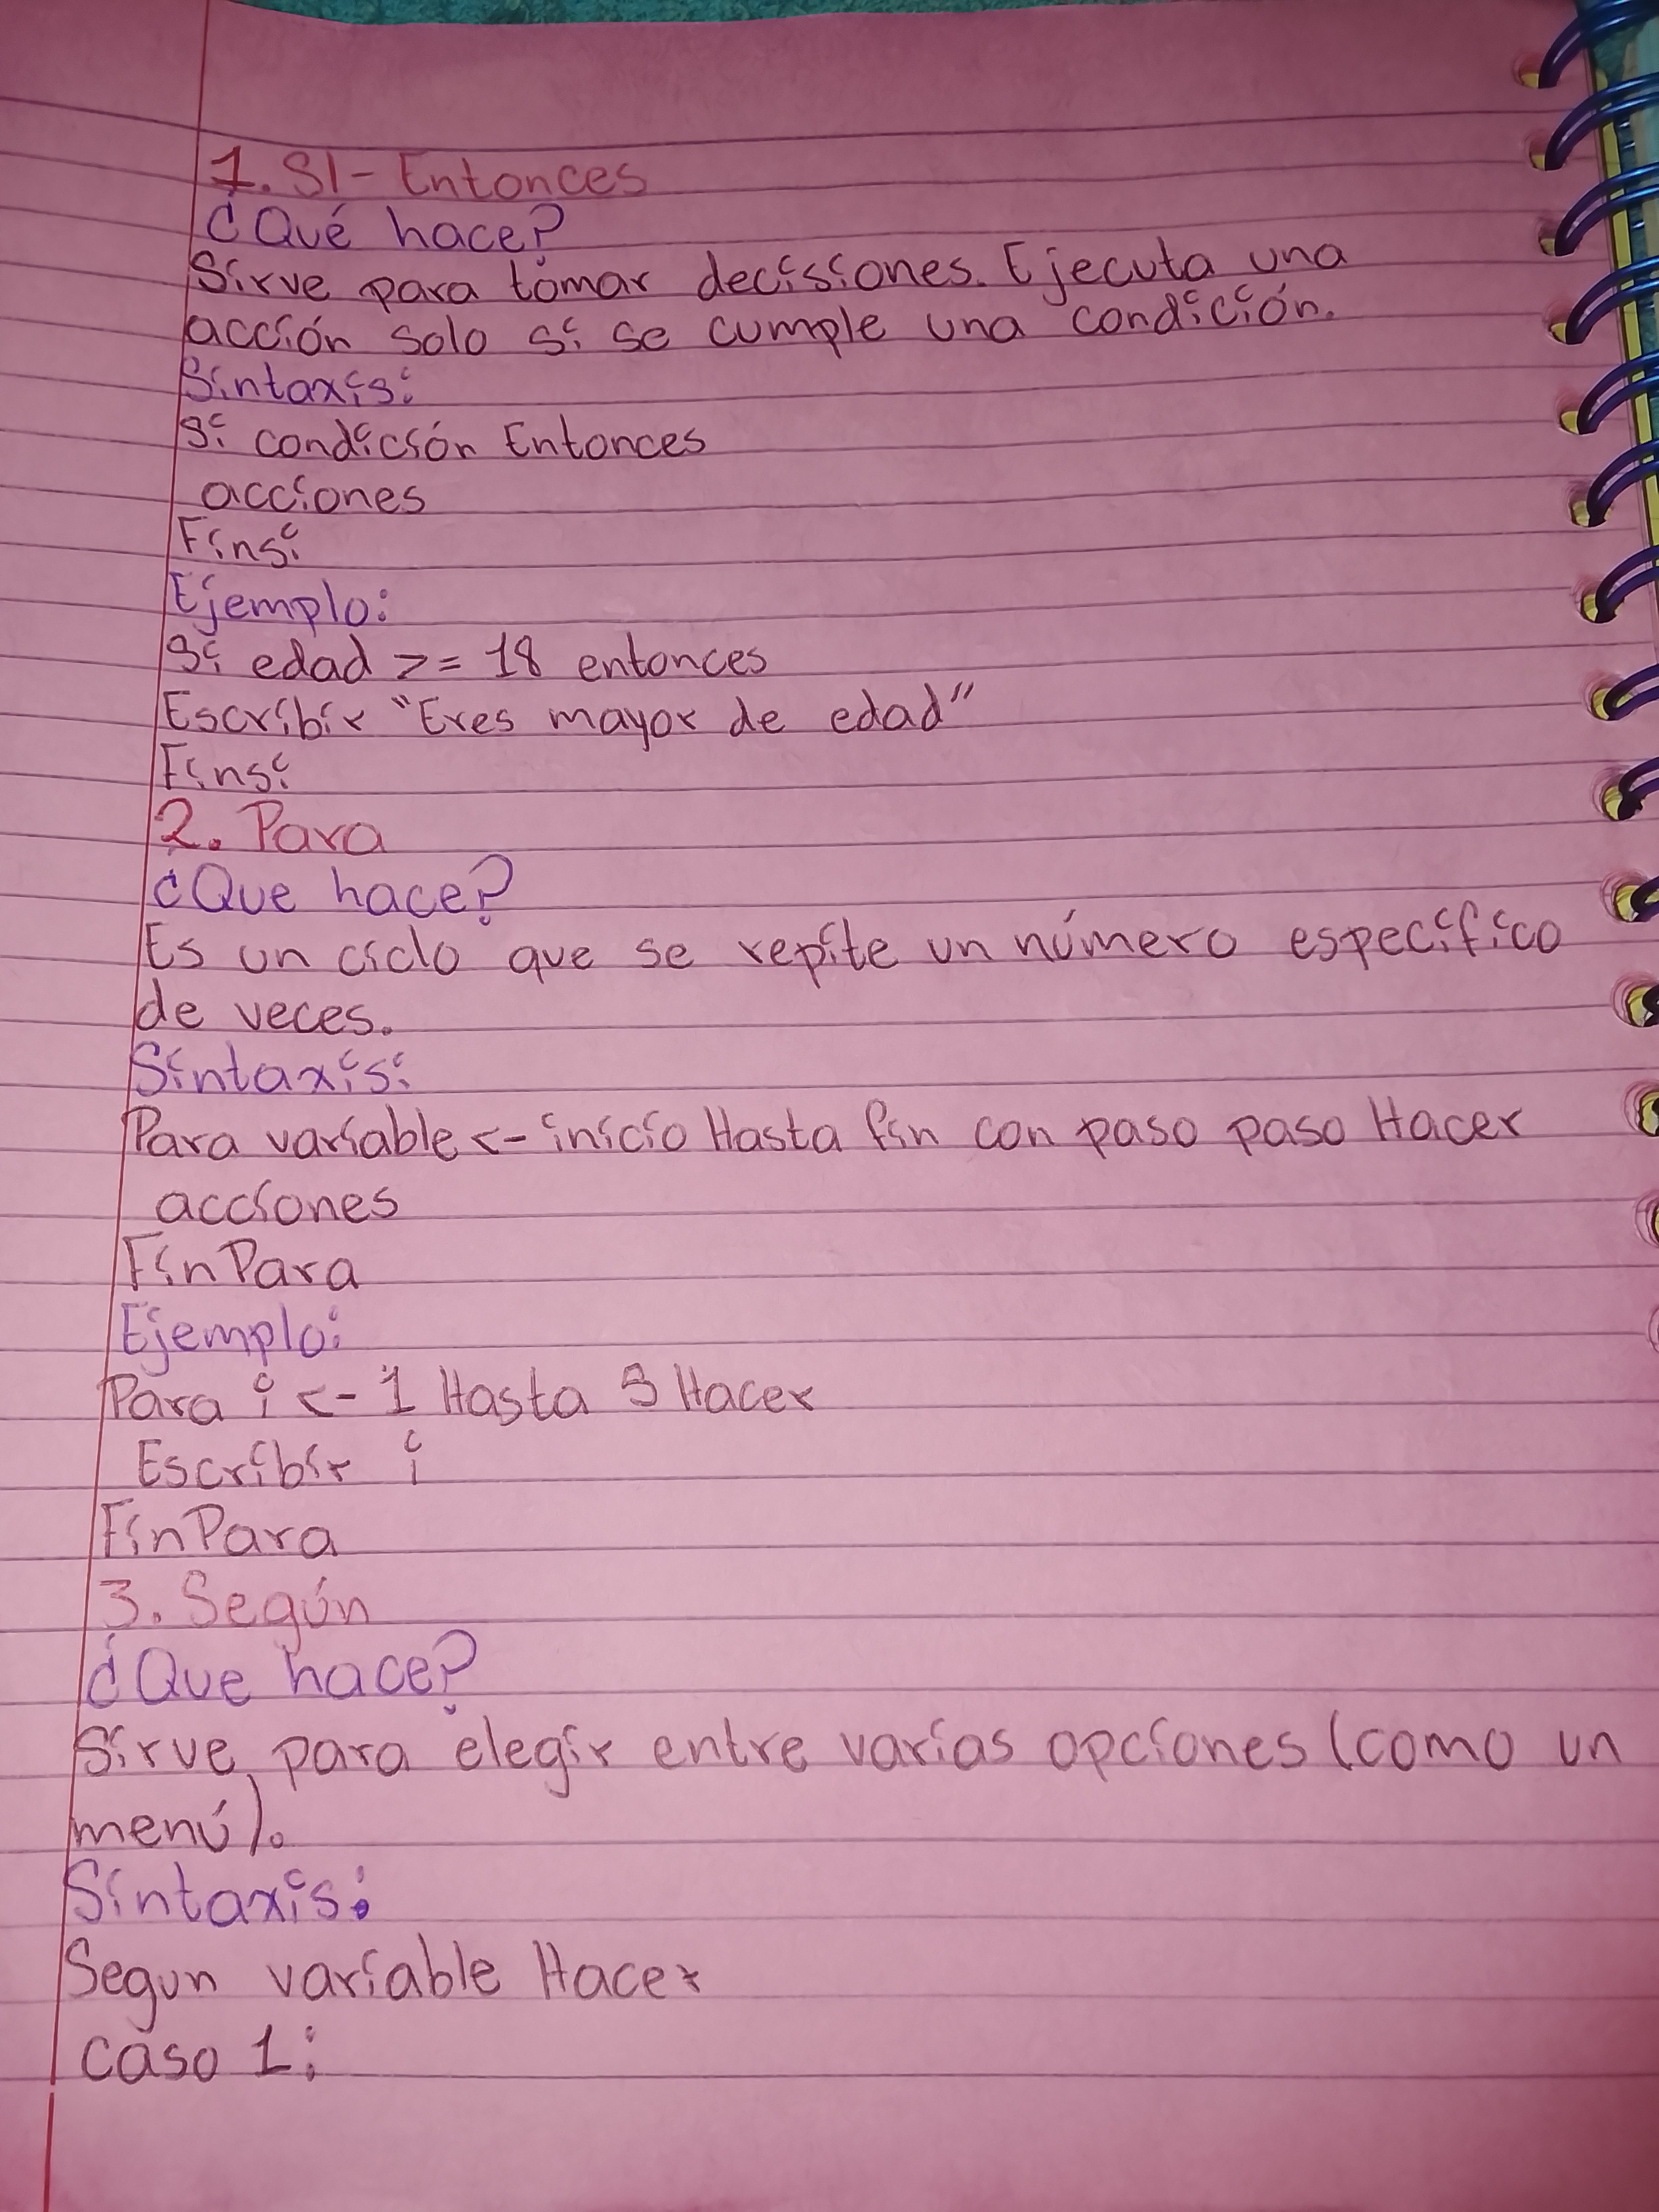 1. SI - Entonces
¿Qué hace?
Sirve para tomar decisiones. Ejecuta una
acción solo si se cumple una condición.
Sintaxis:
Si condición Entonces
acciones
Finsi
Ejemplo:
Si edad >= 18 entonces
Escribir "Eres mayor de edad"
Finsi
2. Para
¿Que hace?
Es un ciclo que se repite un número específico
de veces.
Sintaxis:
Para variable <- inicio Hasta fin con paso paso Hacer
acciones
FinPara
Ejemplo:
Para i <- 1 Hasta 5 Hacer
Escribir i
FinPara
3. Según
¿Que hace?
Sirve para elegir entre varias opciones (como un
menú).
Sintaxis:
Segun variable Hacer
caso 1: